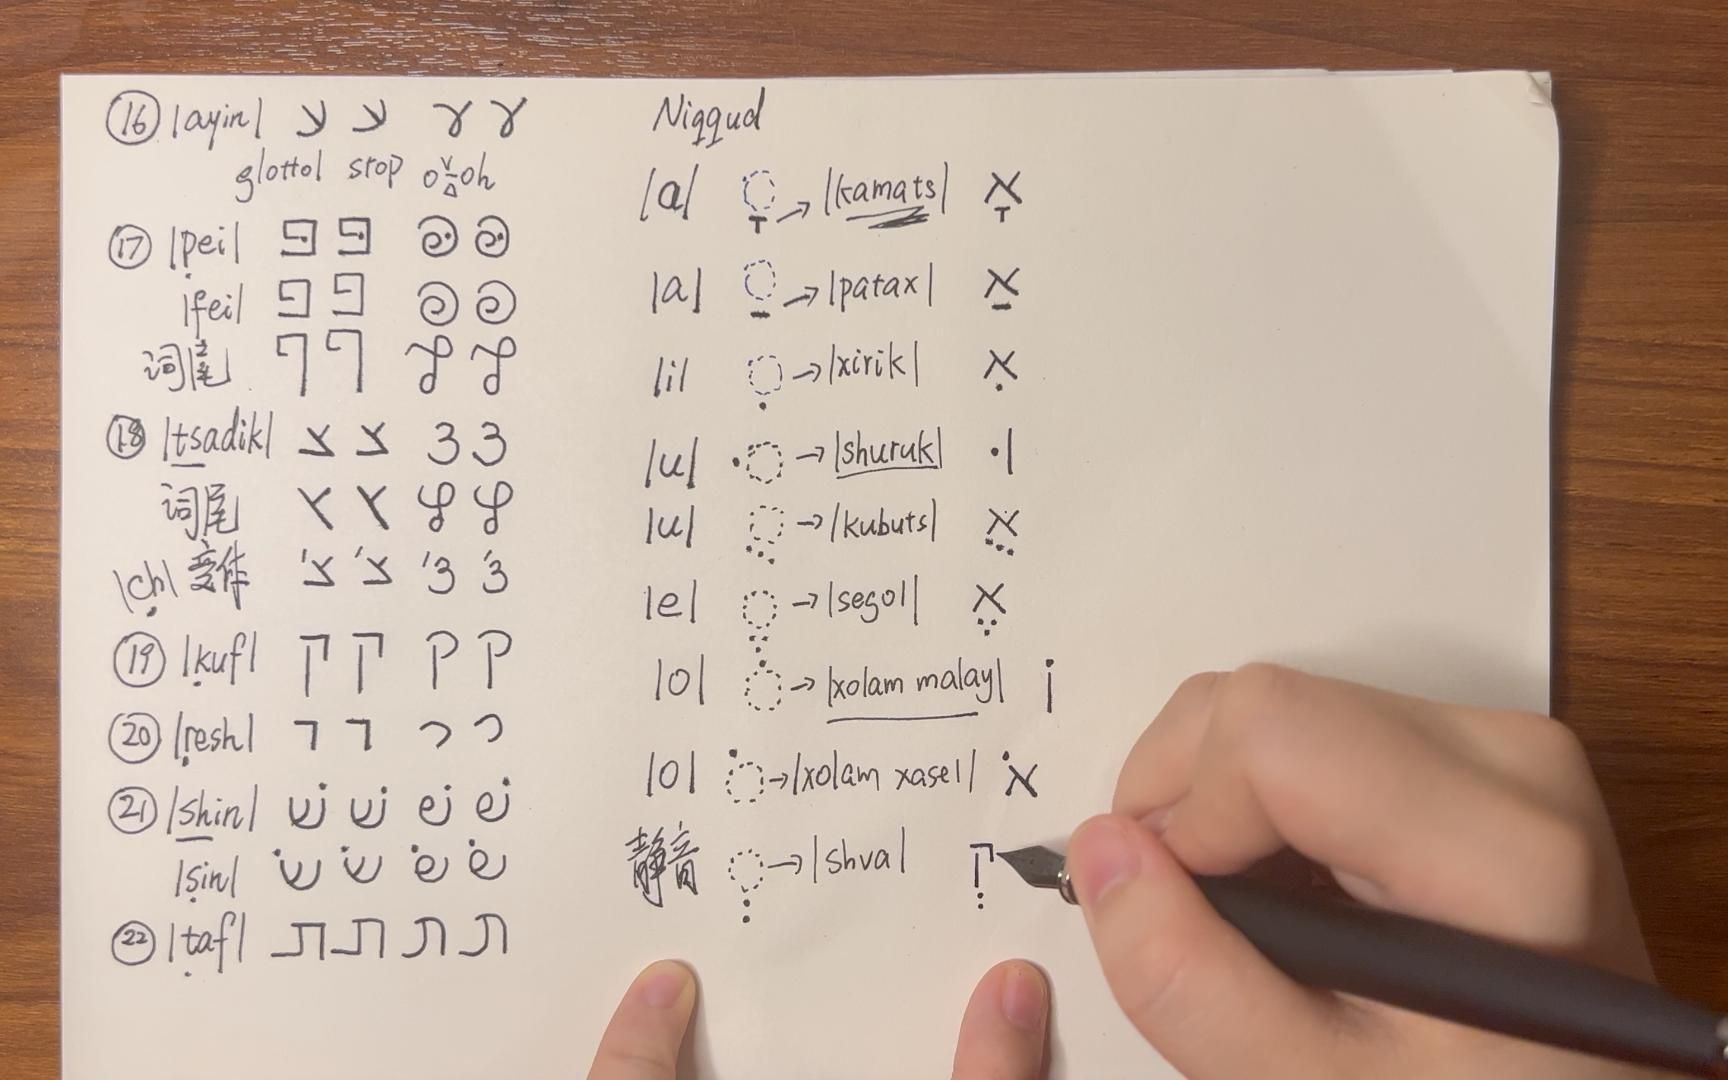 ⑯ |ayin| ע ע ע ע
glottol stop o oh
⑰ |pei| פּ פּ פּ פּ
|fei| פ פ פ פ
词尾 ף ף ף ף
⑱ |tsadik| צ צ צ צ
词尾 ץ ץ ץ ץ
|ch| 变体 צ' צ' צ' צ'
⑲ |kuf| ק ק ק ק
⑳ |resh| ר ר ר ר
㉑ |shin| שׁ שׁ שׁ שׁ
|sin| שׂ שׂ שׂ שׂ
㉒ |taf| ת ת ת ת
Niqqud
|a| ◌ָ → |kamats| אָ
|a| ◌ַ → |patax| אַ
|i| ◌ִ → |xirik| אִ
|u| ◌ּ → |shuruk| וּ
|u| ◌ֻ → |kubuts| אֻ
|e| ◌ֶ → |segol| אֶ
|o| ◌ֹ → |xolam malay| וֹ
|o| ◌ֹ → |xolam xasel| אֹ
静音 ◌ְ → |shva| ךְ